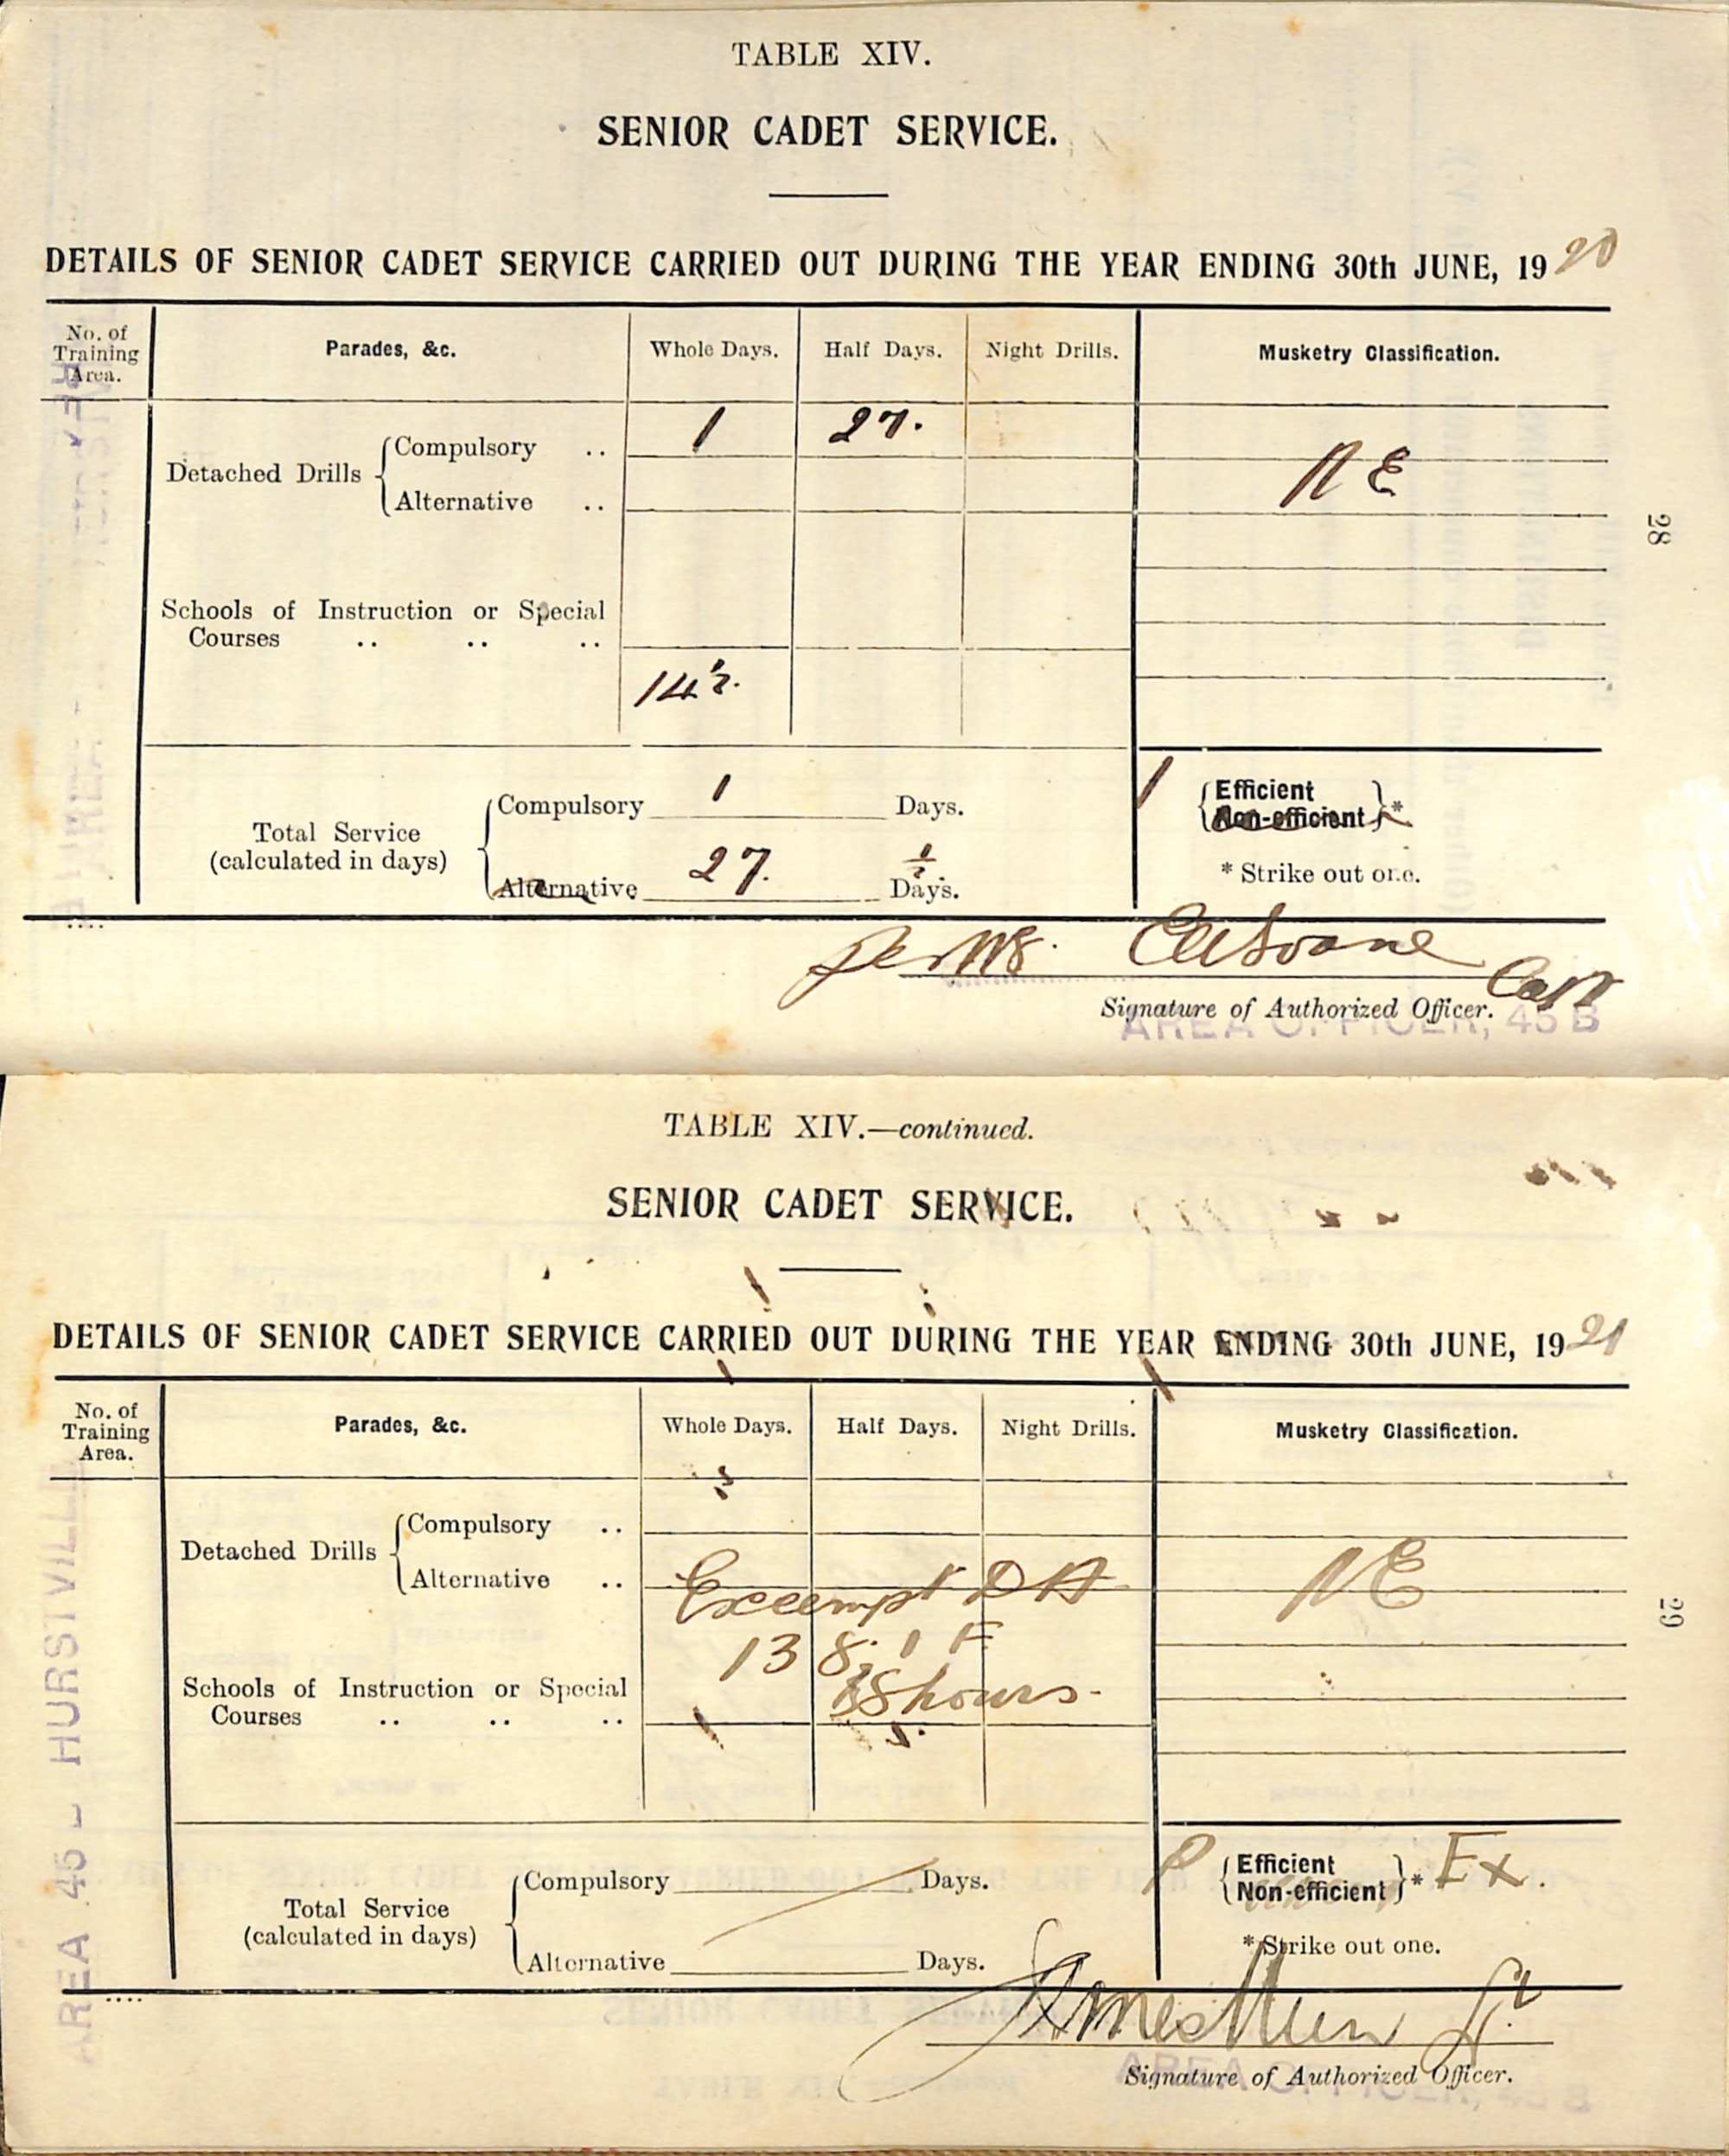 TABLE XIV.
SENIOR CADET SERVICE.
DETAILS OF SENIOR CADET SERVICE CARRIED OUT DURING THE YEAR ENDING 30th JUNE, 1920
No. of Training Area.
Parades, &c.
Whole Days.
Half Days.
Night Drills.
Musketry Classification.
Detached Drills
Compulsory .. 1 27.
Alternative ..
N E
28
Schools of Instruction or Special
Courses .. .. ..
Total Service
(calculated in days)
Compulsory 1 Days.
Alternative 27. ½ Days.
1
Efficient
Non-efficient
*
* Strike out one.
Capt
Signature of Authorized Officer.
AREA OFFICER, 45 B
TABLE XIV.—continued.
SENIOR CADET SERVICE.
DETAILS OF SENIOR CADET SERVICE CARRIED OUT DURING THE YEAR ENDING 30th JUNE, 1921
No. of Training Area.
Parades, &c.
Whole Days.
Half Days.
Night Drills.
Musketry Classification.
Detached Drills
Compulsory ..
Alternative ..
Exempt DA
NE
29
13
hours
Schools of Instruction or Special
Courses .. .. ..
AREA 45 - HURSTVILLE
Total Service
(calculated in days)
Compulsory Days.
Alternative Days.
Efficient
Non-efficient
* Ex.
* Strike out one.
Signature of Authorized Officer.
AREA OFFICER, 45 B